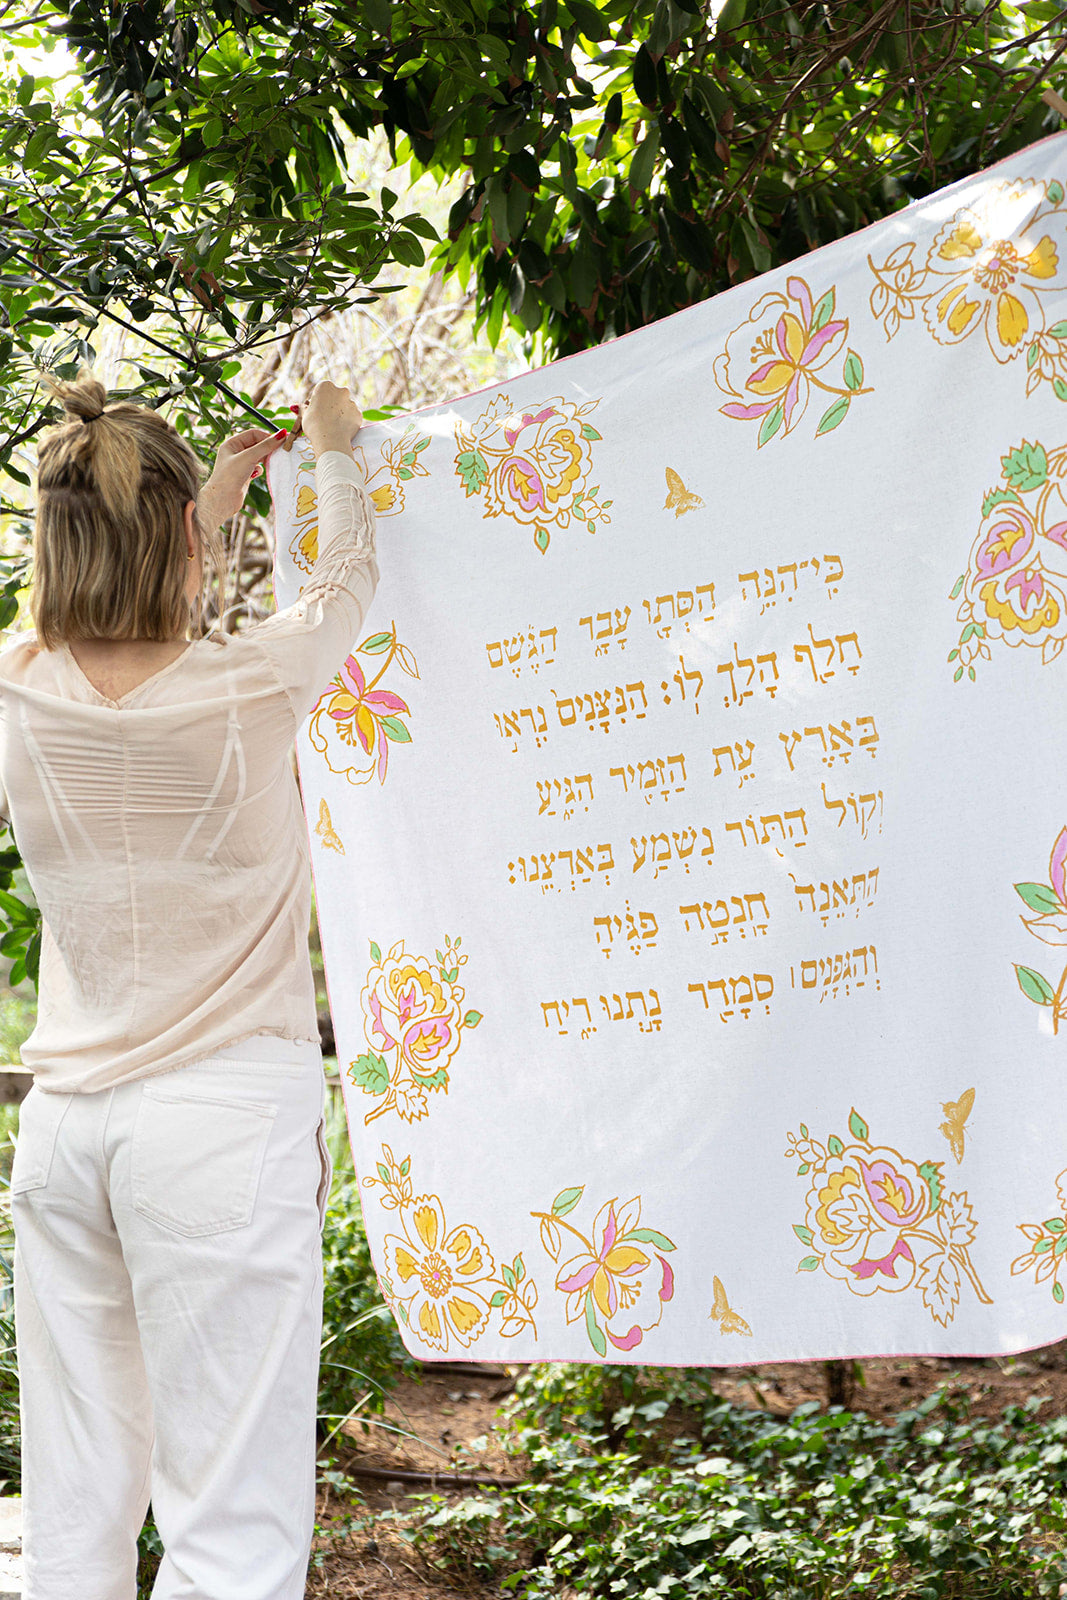 כִּֽי־הִנֵּ֥ה הַסְּתָ֖ו עָבָ֑ר הַגֶּ֕שֶׁם
חָלַ֖ף הָלַ֥ךְ לֽוֹ׃ הַנִּצָּנִים֙ נִרְא֣וּ
בָאָ֔רֶץ עֵ֥ת הַזָּמִ֖יר הִגִּ֑יעַ
וְק֥וֹל הַתּ֖וֹר נִשְׁמַ֥ע בְּאַרְצֵֽנוּ׃
הַתְּאֵנָה֙ חָֽנְטָ֣ה פַגֶּ֔יהָ
וְהַגְּפָנִ֥ים׀ סְמָדַ֖ר נָ֣תְנוּ רֵ֑יחַ